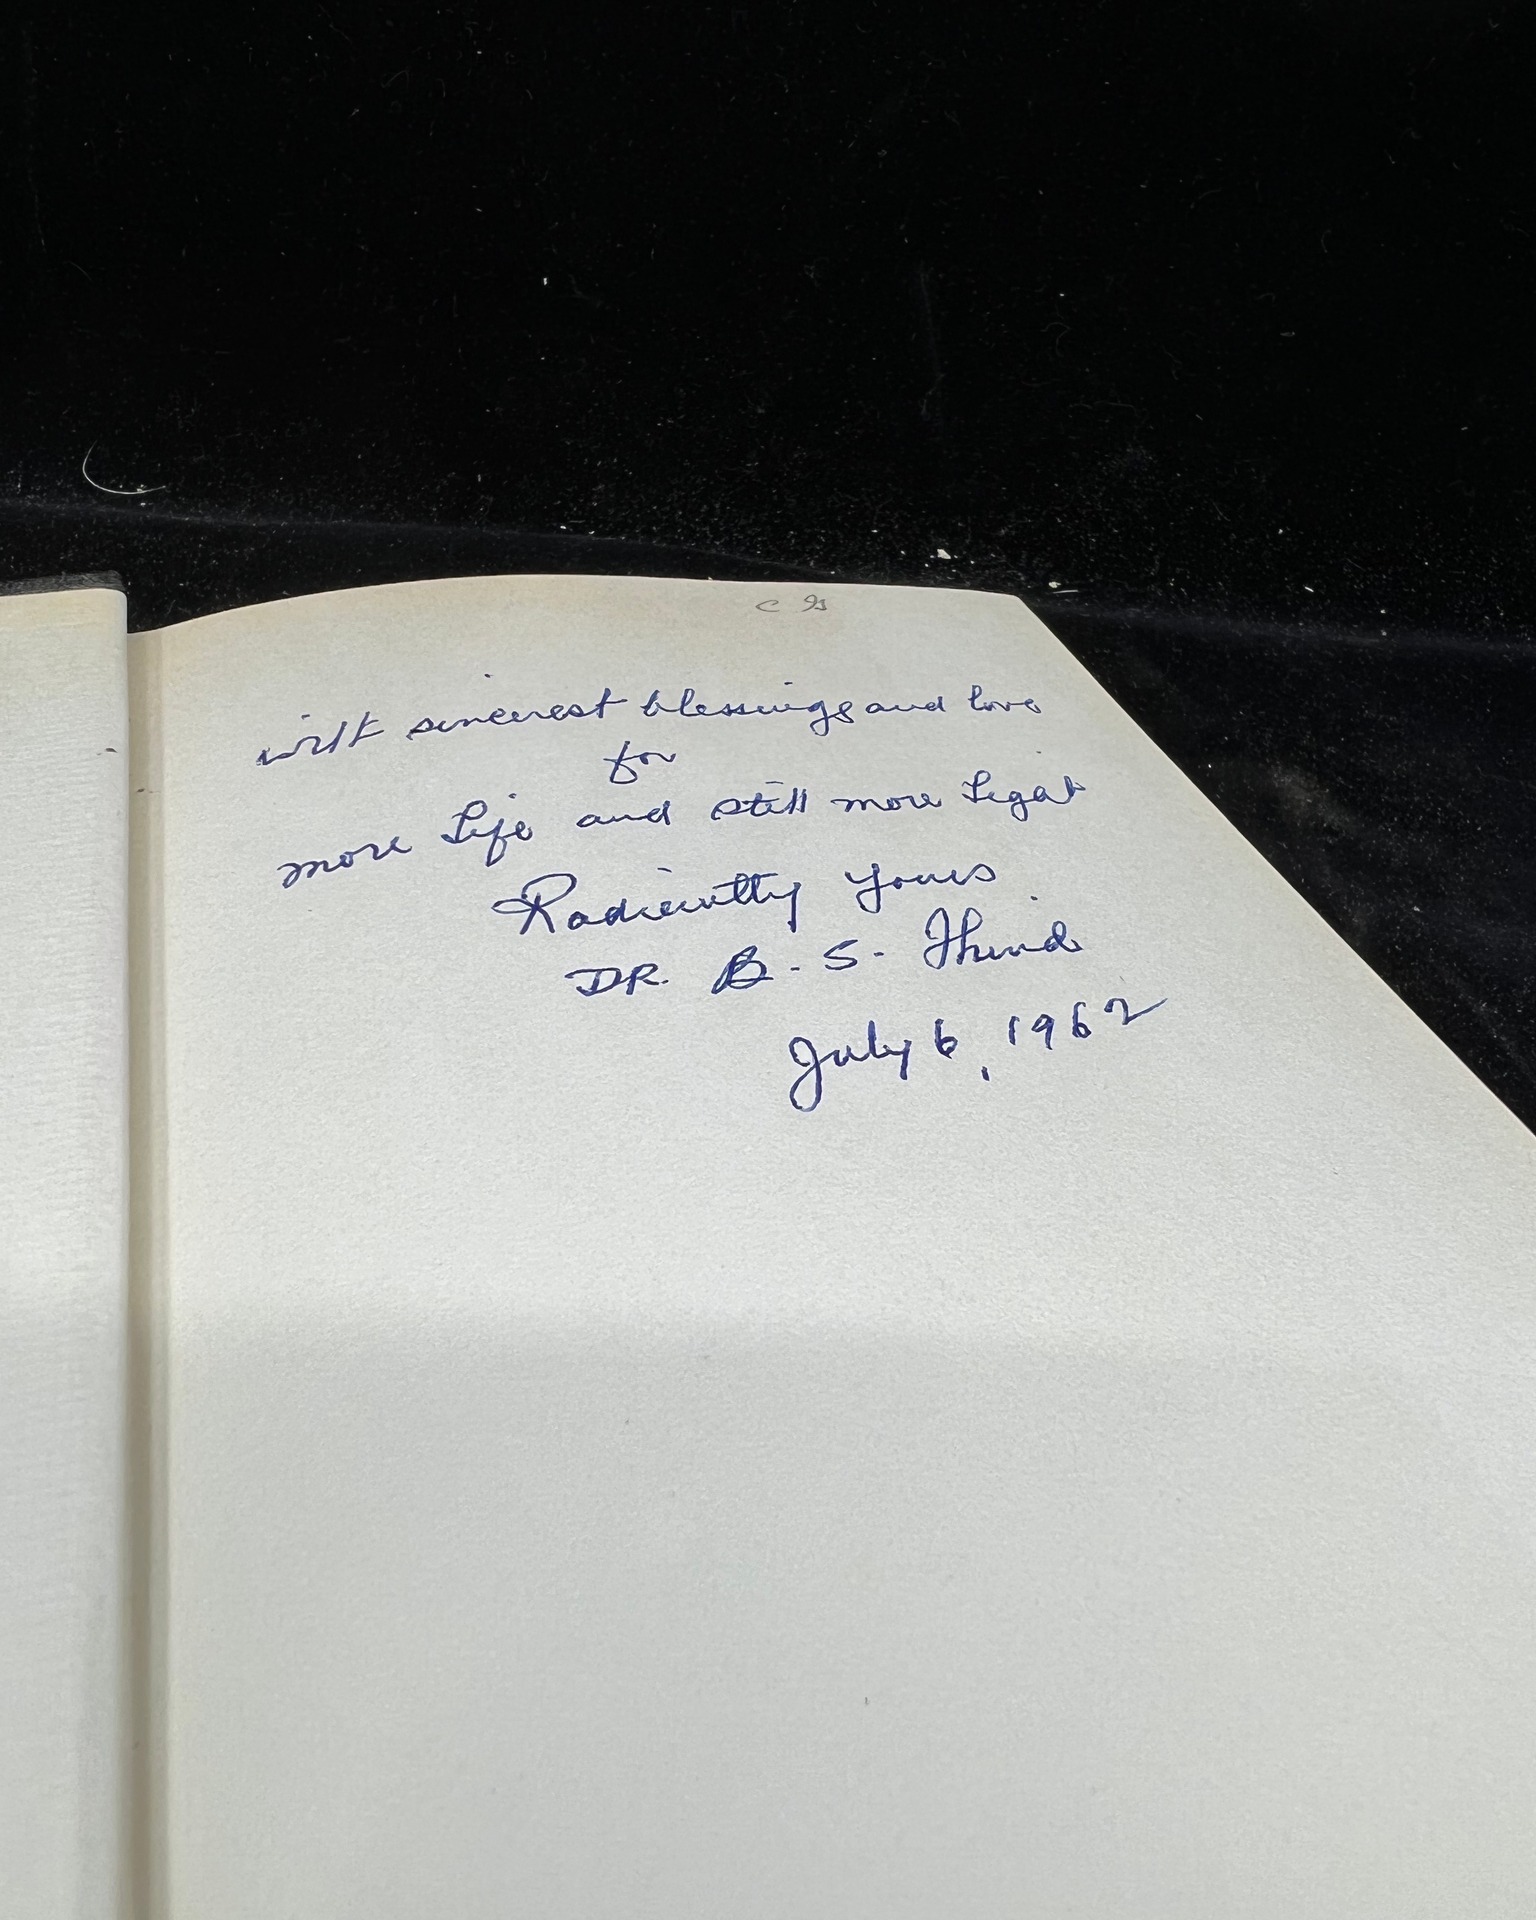 with sincerest blessings and love
for
more Life and still more Light
Radiantly yours
DR. B. S. Thind
July 6, 1962